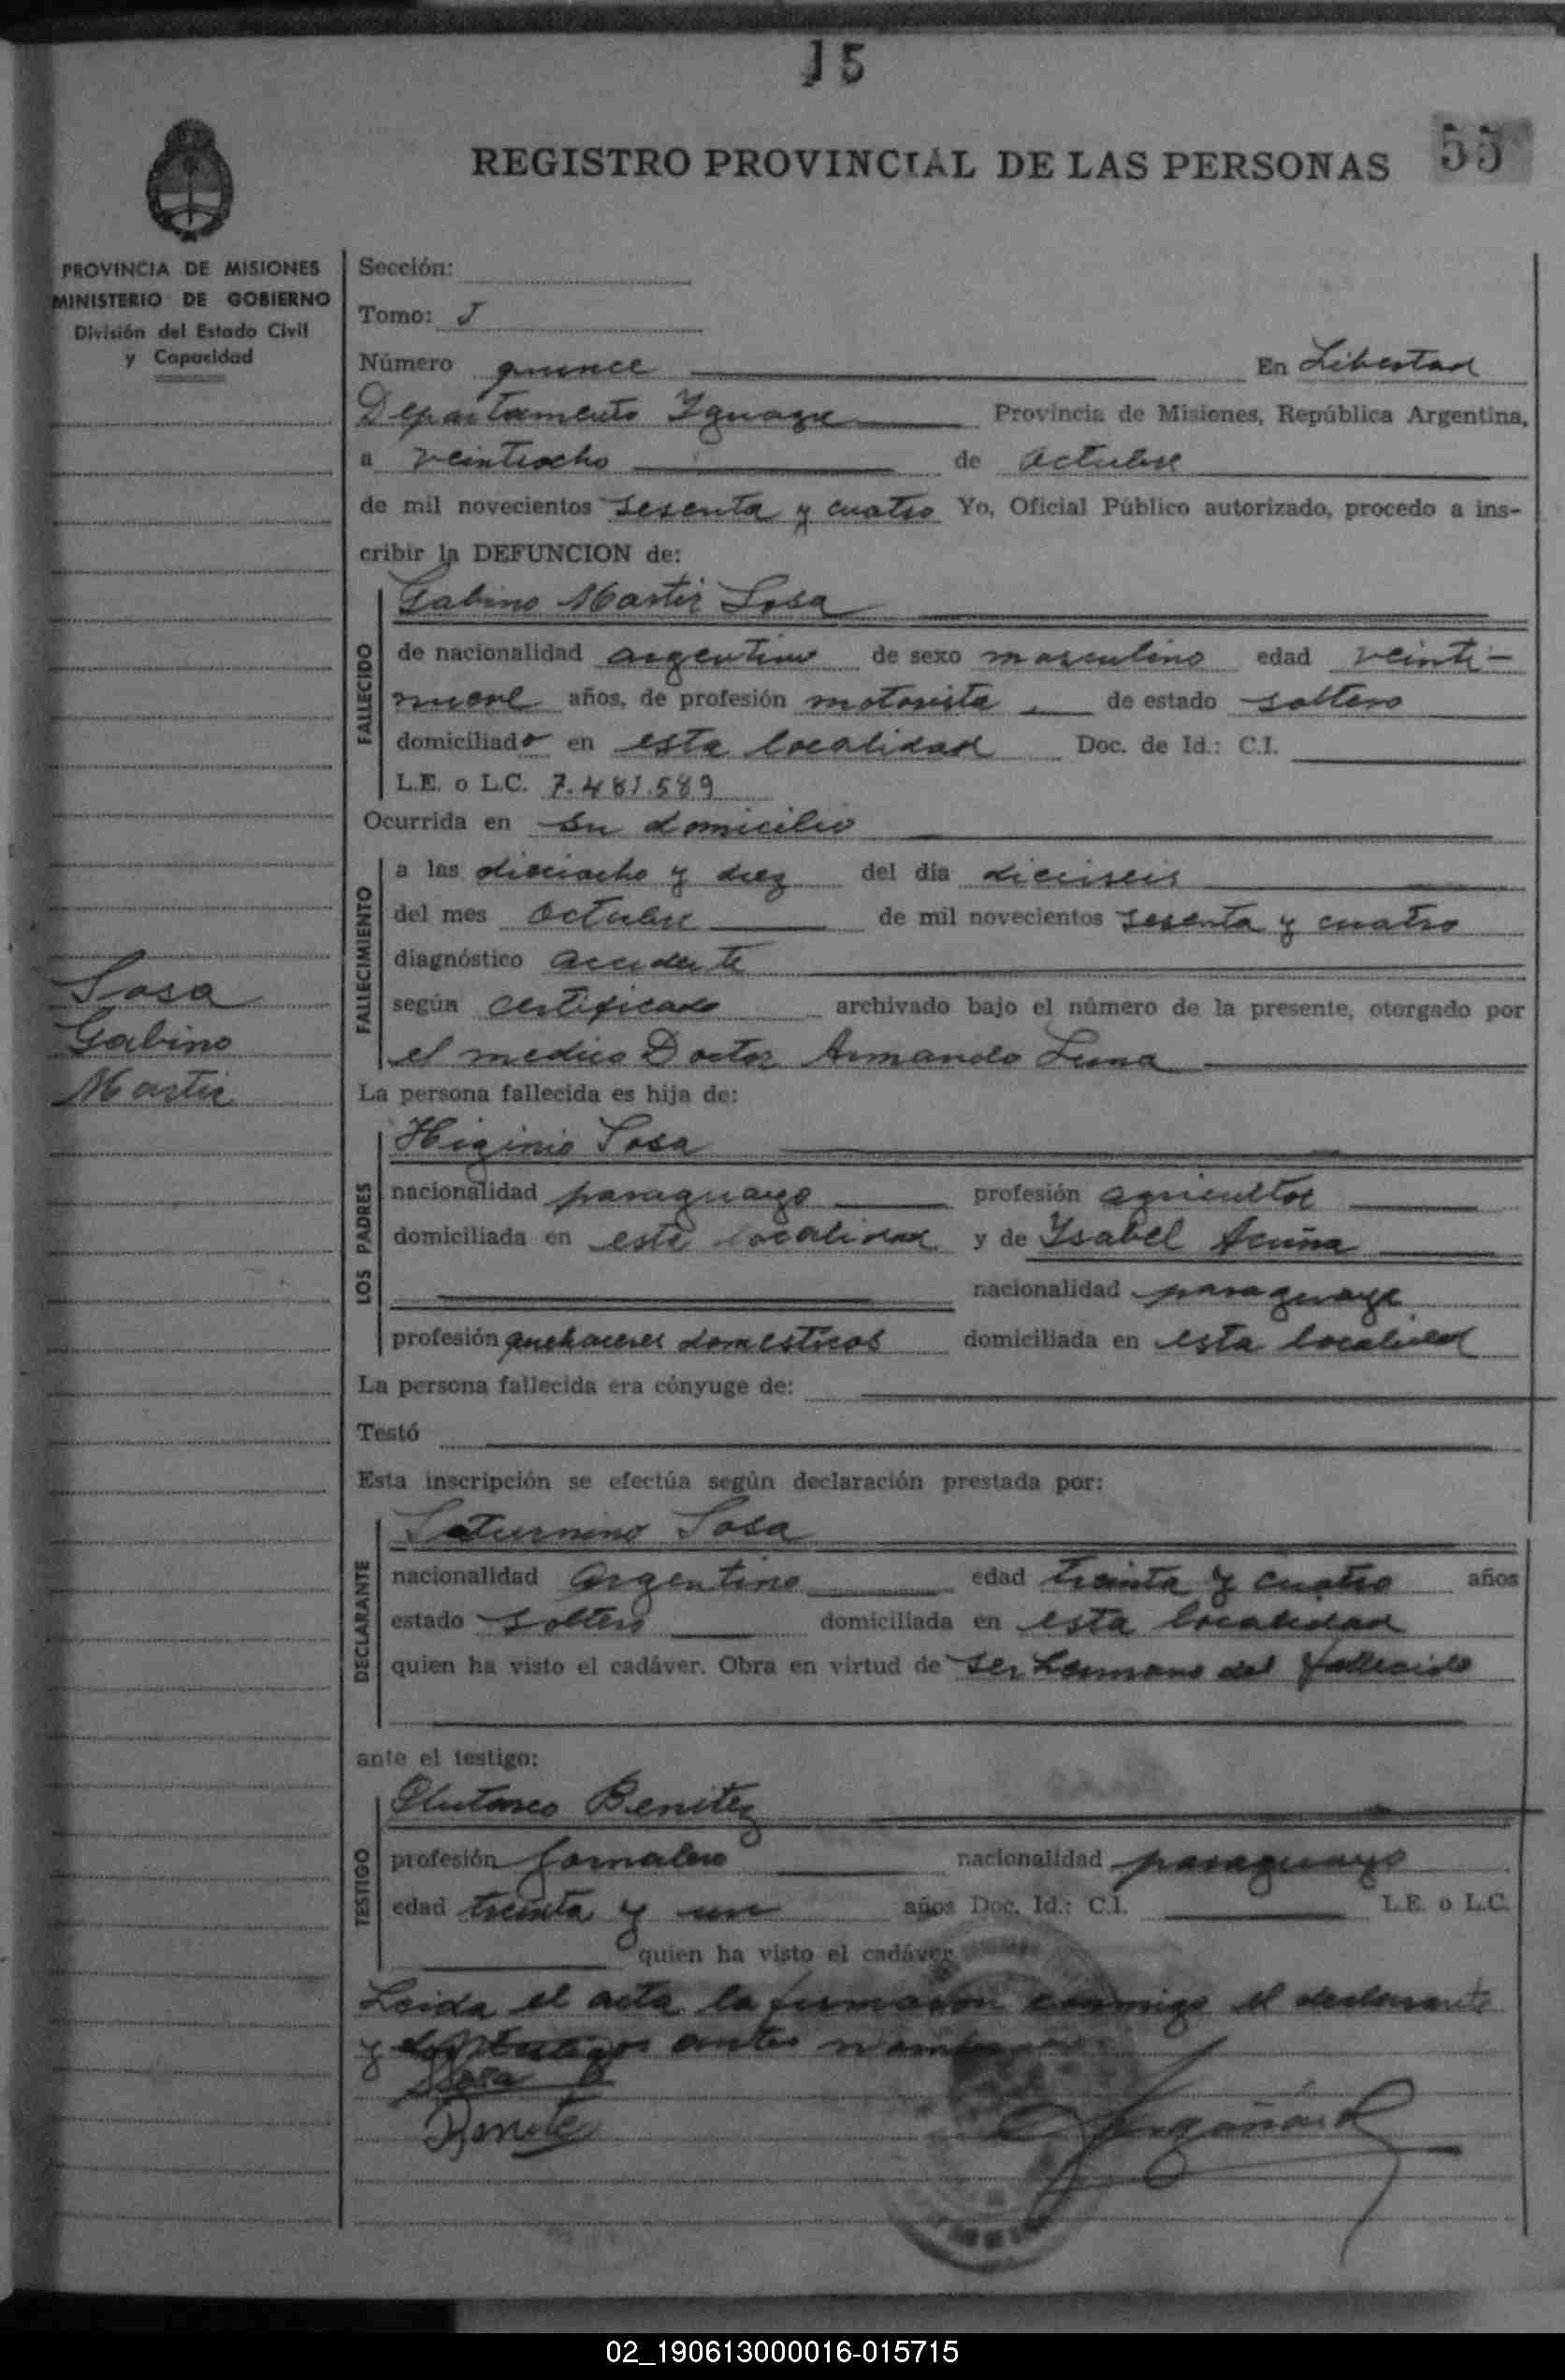 15
REGISTRO PROVINCIAL DE LAS PERSONAS
55
PROVINCIA DE MISIONES
MINISTERIO DE GOBIERNO
División del Estado Civil
y Capacidad
Sección:
Tomo: I
Número quince En Libertad
Departamento Iguazu Provincia de Misiones, República Argentina,
a veintiocho de octubre
de mil novecientos sesenta y cuatro Yo, Oficial Público autorizado, procedo a ins-
cribir la DEFUNCION de:
Gabino Martir Sosa
FALLECIDO
de nacionalidad argentino de sexo masculino edad veinti-
nueve años, de profesión motorista de estado soltero
domiciliado en esta localidad Doc. de Id.: C.I.
L.E. o L.C. 7.481.589
Ocurrida en su domicilio
FALLECIMIENTO
a las dieciocho y diez del día dieciseis
del mes Octubre de mil novecientos sesenta y cuatro
diagnóstico accidente
según certificado archivado bajo el número de la presente, otorgado por
el medico Doctor Armando Luna
Sosa
Gabino
Martir
La persona fallecida es hija de:
LOS PADRES
Higinio Sosa
nacionalidad paraguayo profesión agricultor
domiciliada en esta localidad y de Ysabel Acuña
nacionalidad paraguaya
profesión quehaceres domesticos domiciliada en esta localidad
La persona fallecida era cónyuge de:
Testó
Esta inscripción se efectúa según declaración prestada por:
DECLARANTE
Saturnino Sosa
nacionalidad argentino edad treinta y cuatro años
estado soltero domiciliada en esta localidad
quien ha visto el cadáver. Obra en virtud de ser hermano del fallecido
ante el testigo:
TESTIGO
Plutarco Benitez
profesión Jornalero nacionalidad paraguayo
edad treinta y un años Doc. Id.: C.I. L.E. o L.C.
quien ha visto el cadáver
Leida el acta la firmaron conmigo el declarante
y los testigos antes
Sosa
Benite
02_190613000016-015715